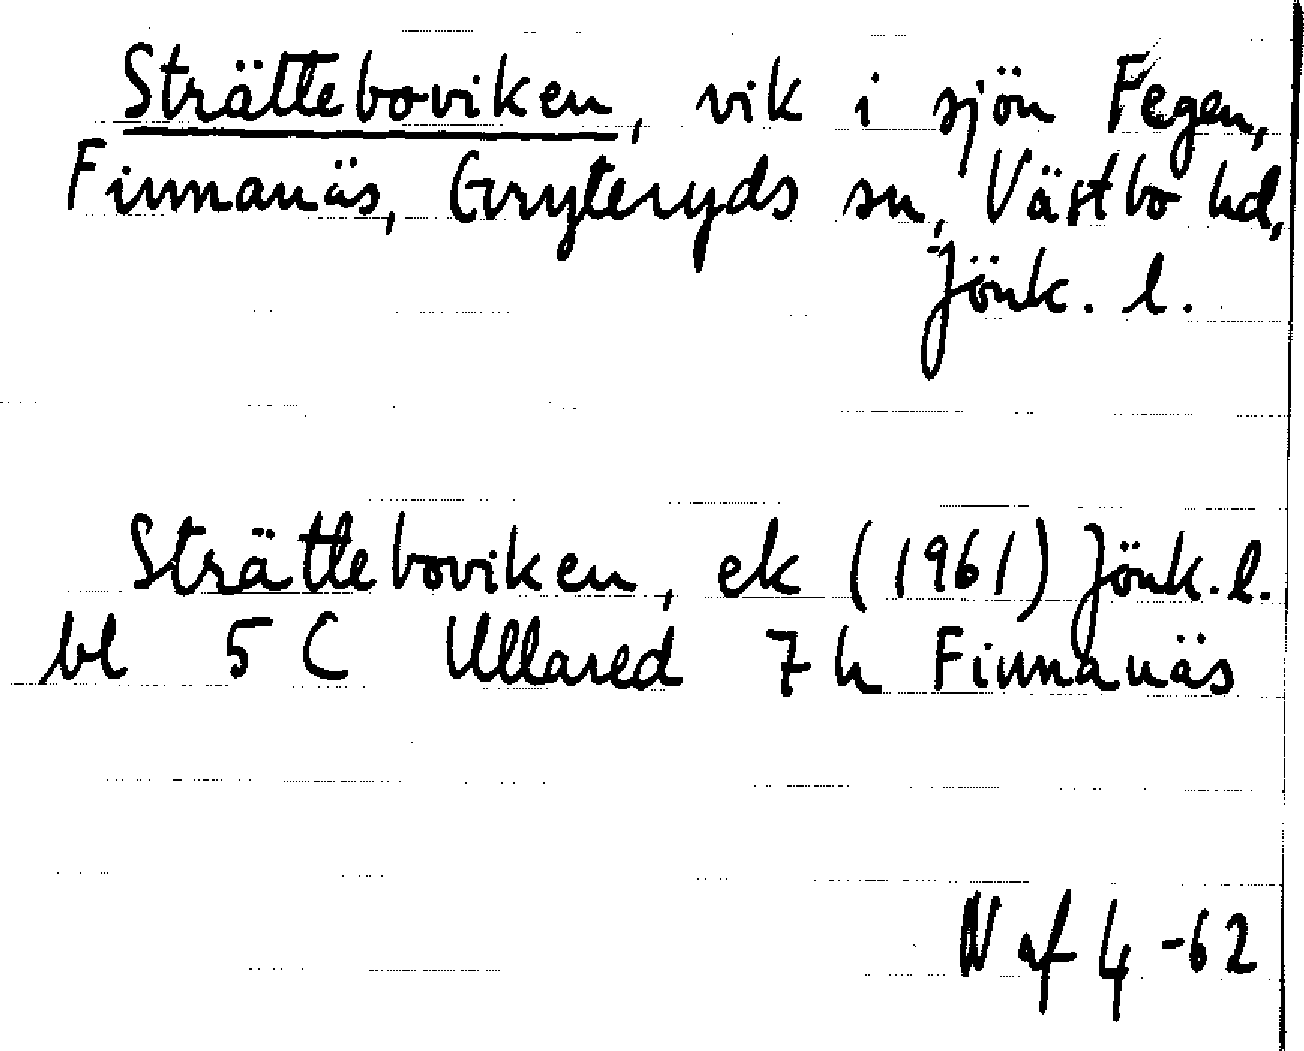 Strätteboviken, vik i sjön Fegen,
Finnanäs, Gryteryds sn, Västbo hd,
Jönk. l.
Strätteboviken, ek (1961) Jönk. l.
bl 5 C Ullared 7 h Finnanäs
N af 4 -62